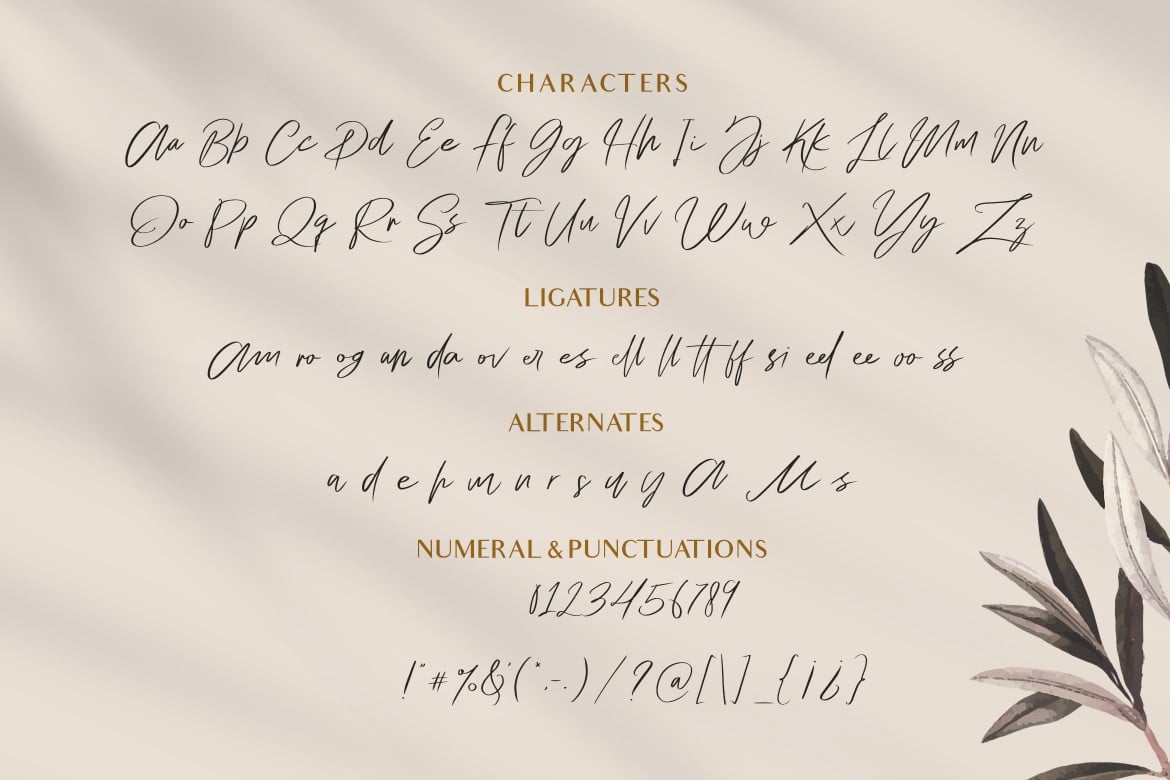 CHARACTERS
Aa Bb Cc Dd Ee Ff Gg Hh Ii Jj Kk Ll Mm Nn
Oo Pp Qq Rr Ss Tt Uu Vv Ww Xx Yy Zz
LIGATURES
Am ro og an da ov er es ell ll tt ff si eel ee oo ss
ALTERNATES
a d e h m n r s u y A M s
NUMERAL & PUNCTUATIONS
0123456789
!"#%&'(*,-.)/?@[\]_{¡¿}